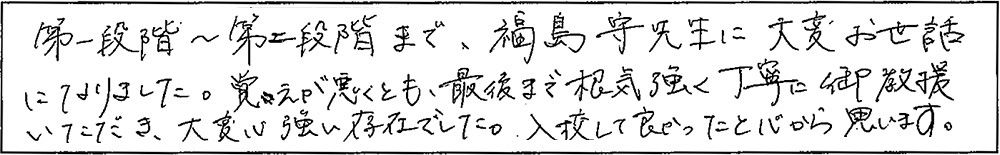 第一段階～第二段階まで、福島守先生に大変お世話
になりました。覚えが悪くとも、最後まで根気強く丁寧に御教授
いただき、大変心強い存在でした。入校して良かったと心から思います。